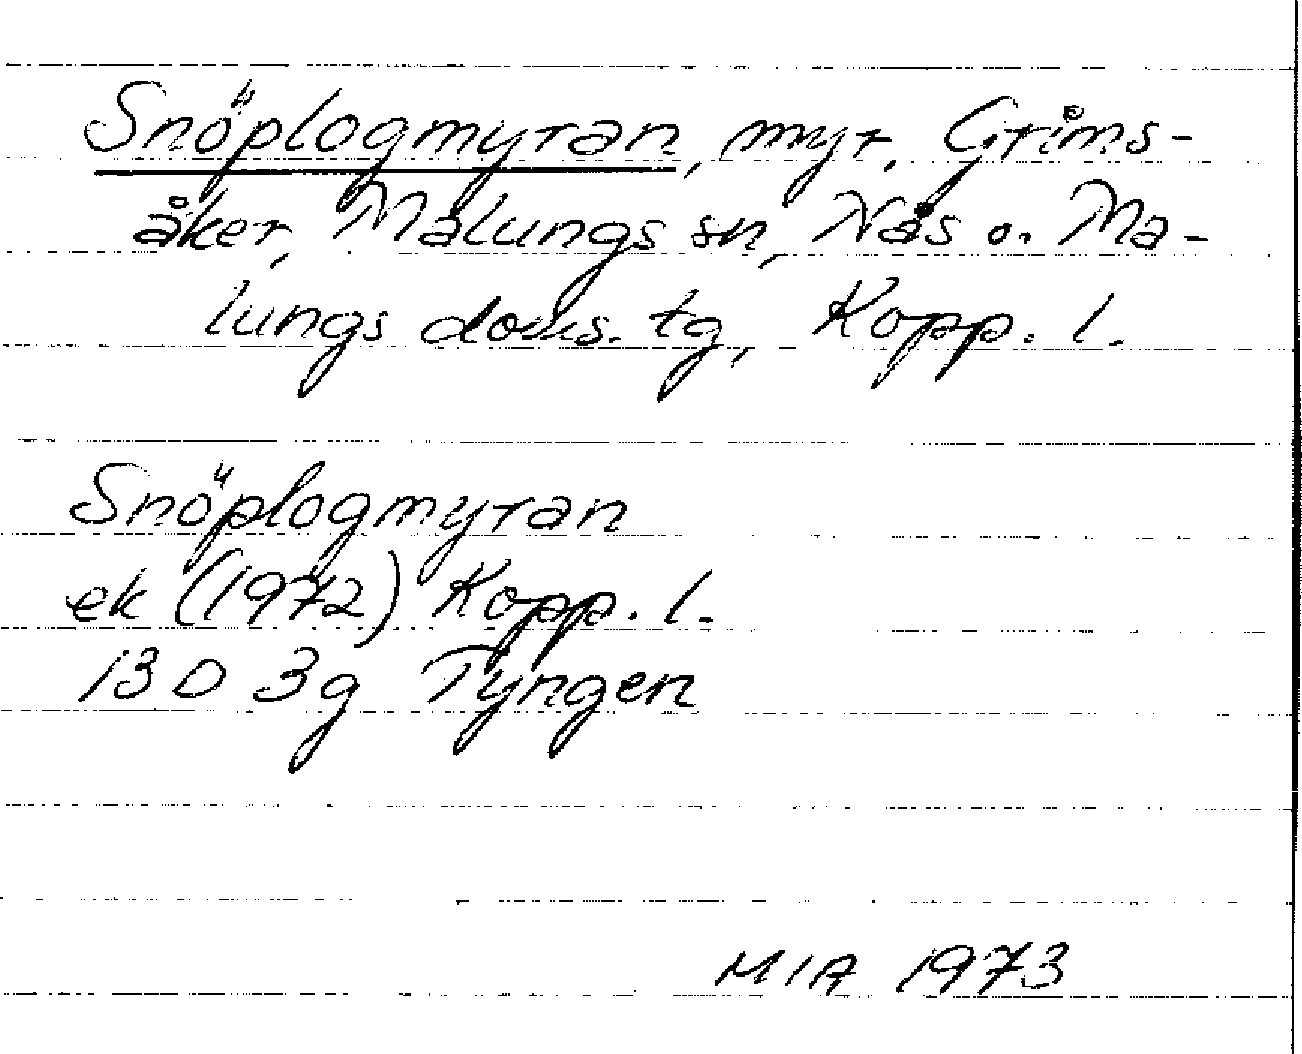 Snöplogmyran, myr, Grims-
åker, Malungs sn, Nås o. Ma-
lungs doms. tg, Kopp. l.
Snöplogmyran
ek (1972) Kopp. l.
13D 3g Tyngen
MIA 1973